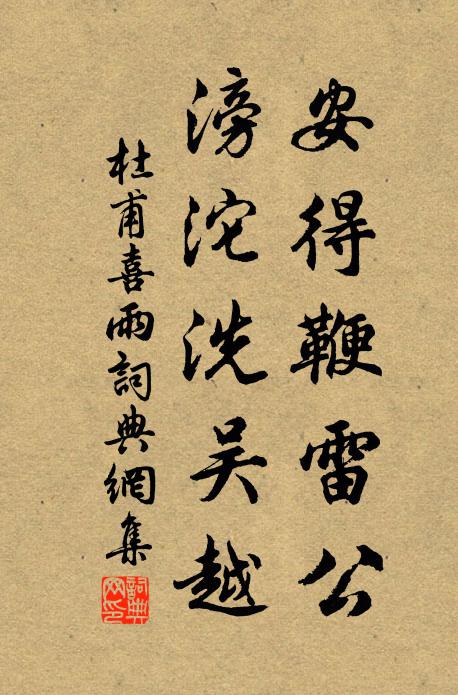 安得鞭雷公
滂沱洗吴越
杜甫喜雨詞典網集
詞典网印